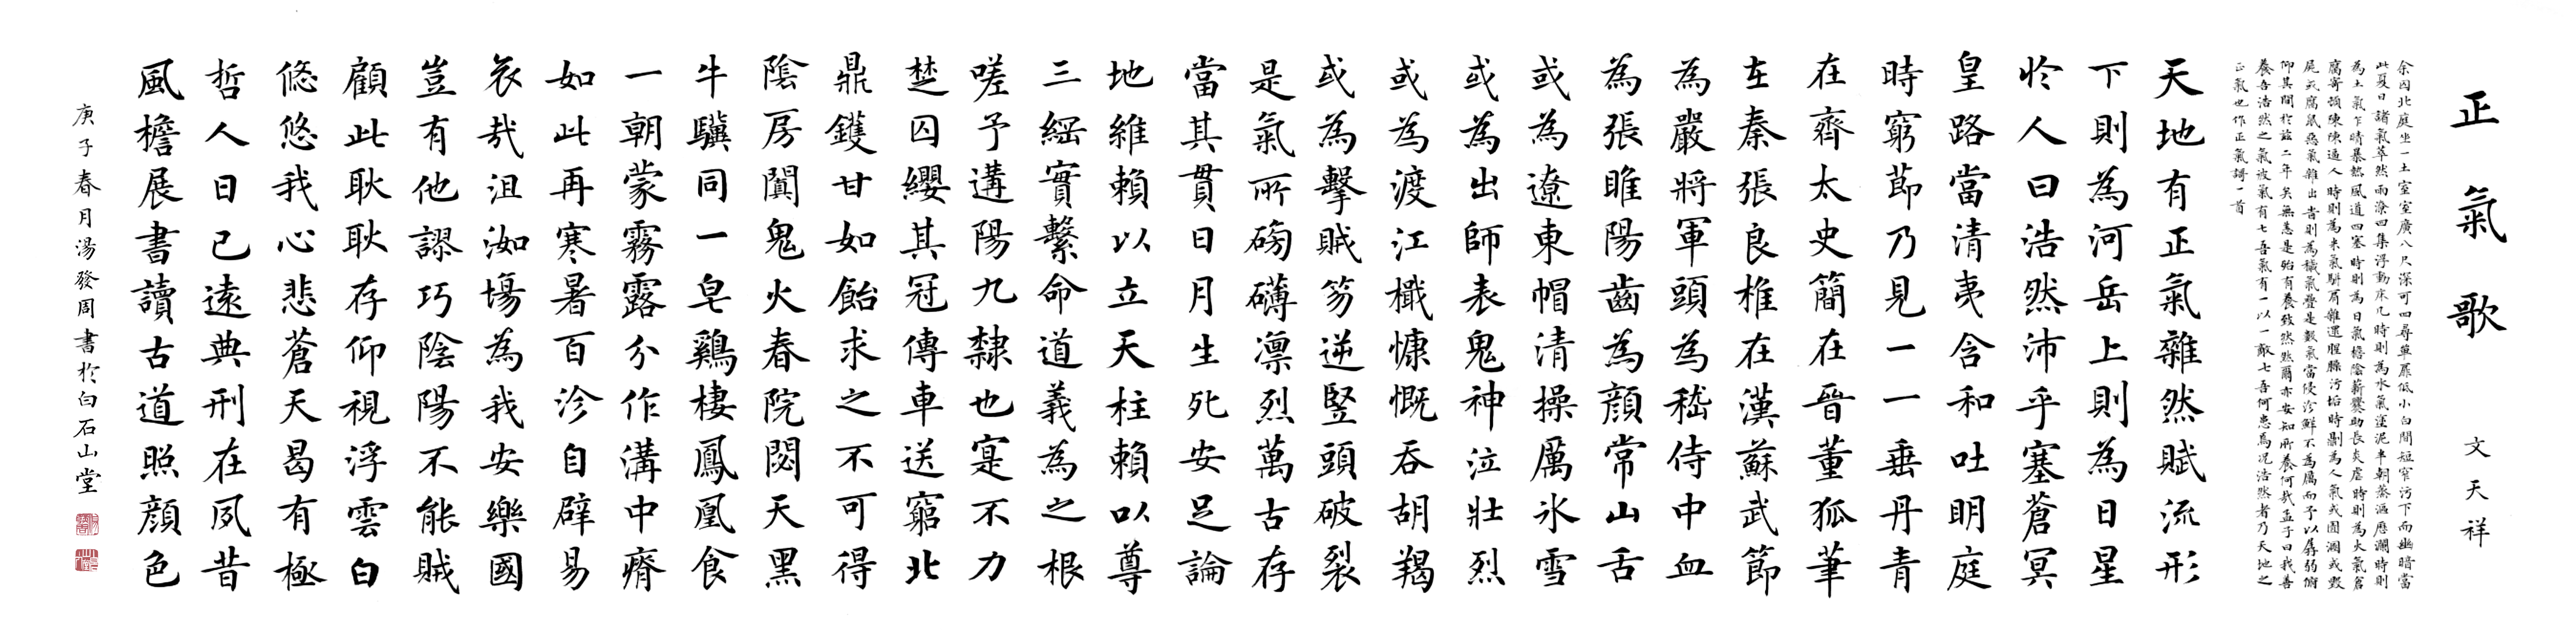 正氣歌 文天祥
余囚北庭坐一土室室廣八尺深可四尋單扉低小白間短窄污下而幽暗當
此夏日諸氣萃然雨潦四集浮動床几時則為水氣塗泥半朝蒸漚歷瀾時則
為土氣乍晴暴熱風道四塞時則為日氣檐陰薪爨助長炎虐時則為火氣倉
腐寄頓陳陳逼人時則為米氣駢肩雜遝腥臊污垢時則為人氣或圊溷或毀
屍或腐鼠惡氣雜出時則為穢氣疊是數氣當侵沴鮮不為厲而予以孱弱俯
仰其間於茲二年矣無恙是殆有養致然然爾亦安知所養何哉孟子曰我善
養吾浩然之氣彼氣有七吾氣有一以一敵七吾何患焉況浩然者乃天地之
正氣也作正氣歌一首
天地有正氣雜然賦流形
下則為河岳上則為日星
於人曰浩然沛乎塞蒼冥
皇路當清夷含和吐明庭
時窮節乃見一一垂丹青
在齊太史簡在晉董狐筆
在秦張良椎在漢蘇武節
為嚴將軍頭為嵇侍中血
為張睢陽齒為顏常山舌
或為遼東帽清操厲冰雪
或為出師表鬼神泣壯烈
或為渡江檝慷慨吞胡羯
或為擊賊笏逆豎頭破裂
是氣所磅礴凛烈萬古存
當其貫日月生死安足論
地維賴以立天柱賴以尊
三綱實繫命道義為之根
嗟予遘陽九隸也寔不力
楚囚纓其冠傳車送窮北
鼎鑊甘如飴求之不可得
陰房闃鬼火春院閟天黑
牛驥同一皂鷄棲鳳凰食
一朝蒙霧露分作溝中瘠
如此再寒暑百沴自辟易
哀哉沮洳場為我安樂國
豈有他謬巧陰陽不能賊
顧此耿耿存仰視浮雲白
悠悠我心悲蒼天曷有極
哲人日已遠典刑在夙昔
風檐展書讀古道照顏色
庚子春月湯發周書於白石山堂